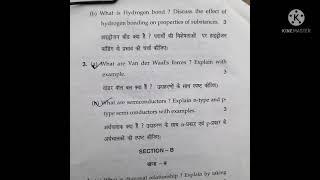 (b) What is Hydrogen bond ? Discuss the effect of
hydrogen bonding on properties of substances. 3
हाइड्रोजन बॉंड क्या है ? पदार्थों की विशेषताओं पर हाइड्रोजन
बॉंडिंग के प्रभाव की चर्चा कीजिए।
3. (a) What are Van der Waal's forces ? Explain with
example. 3
वांडर वॉल बल क्या है ? उदाहरणों के साथ स्पष्ट कीजिए।
(b) What are semiconductors ? Explain n-type and p-
type semi conductors with examples. 3
अर्धचालक क्या हैं ? उदाहरण के साथ n-प्रकार एवं p-प्रकार के
अर्धचालकों को स्पष्ट कीजिए।
SECTION – B
खण्ड – ब
relationship ? Explain by taking
KINEMASTER